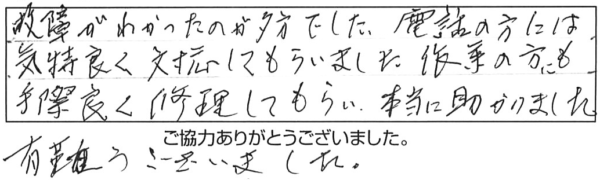 故障がわかったのが夕方でした。電話の方には
気持良く対応してもらいました。作業の方にも
手際良く修理してもらい、本当に助かりました。
ご協力ありがとうございました。
有難うございました。